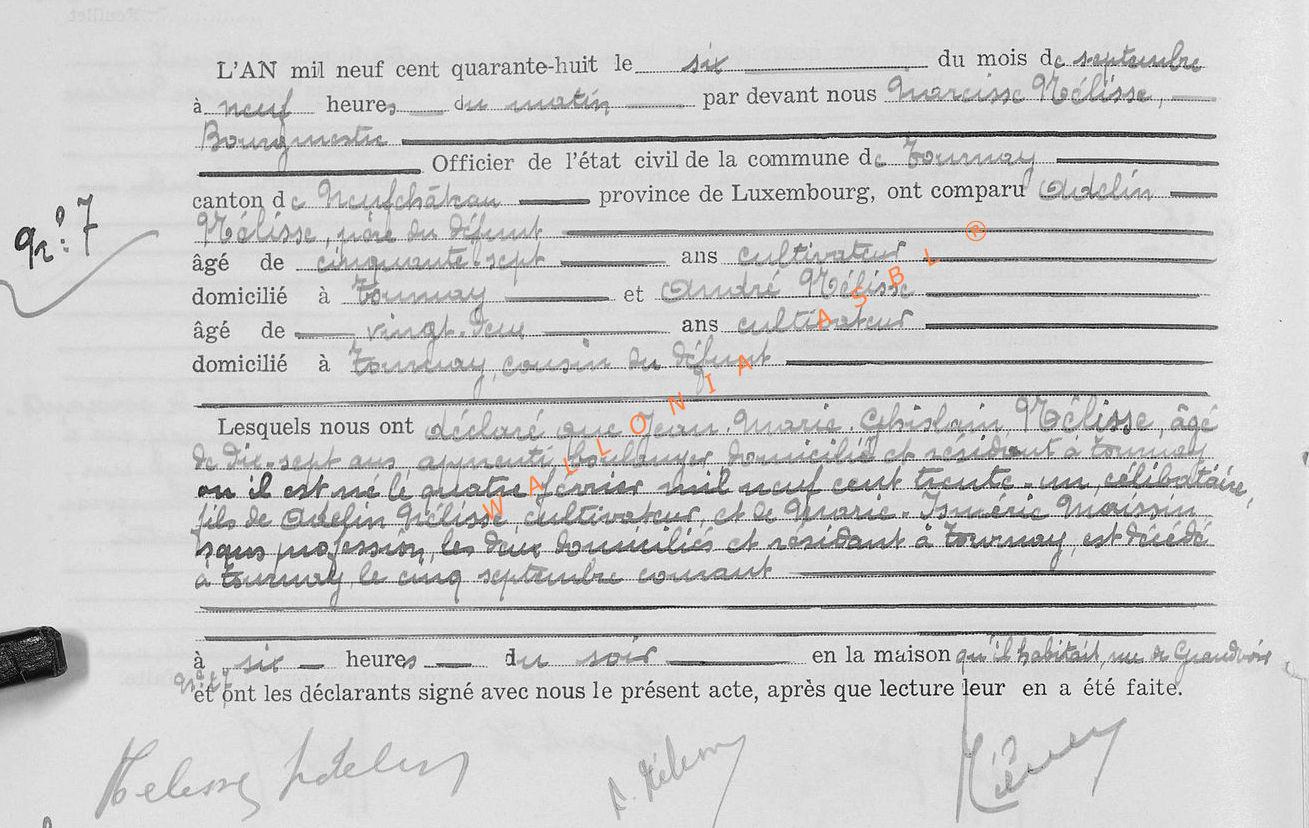 L'AN mil neuf cent quarante-huit le six du mois de septembre
à neuf heures du matin par devant nous Narcisse Hélisse,
Bourgmestre
Officier de l'état civil de la commune de Tournay
canton de Neufchâteau province de Luxembourg, ont comparu Adelin
N°: 7
Hélisse, père du défunt
âgé de cinquante-sept ans cultivateur
domicilié à Tournay et André Hélisse
âgé de vingt-deux ans cultivateur
domicilié à Tournay, cousin du défunt
Lesquels nous ont déclaré que Jean-Marie-Ghislain Hélisse, âgé
de dix-sept ans, apprenti boulanger domicilié et résidant à Tournay
où il est né le quatre février mil neuf cent trente-un, célibataire,
fils de Adelin Hélisse, cultivateur, et de Marie-Isméric Maissin
sans profession, les deux domiciliés et résidant à Tournay, est décédé
à Tournay le cinq septembre courant
à six heures du soir en la maison qu'il habitait, rue de Grandvoir
N° 7
et ont les déclarants signé avec nous le présent acte, après que lecture leur en a été faite.
WALLONIA ASBL ®